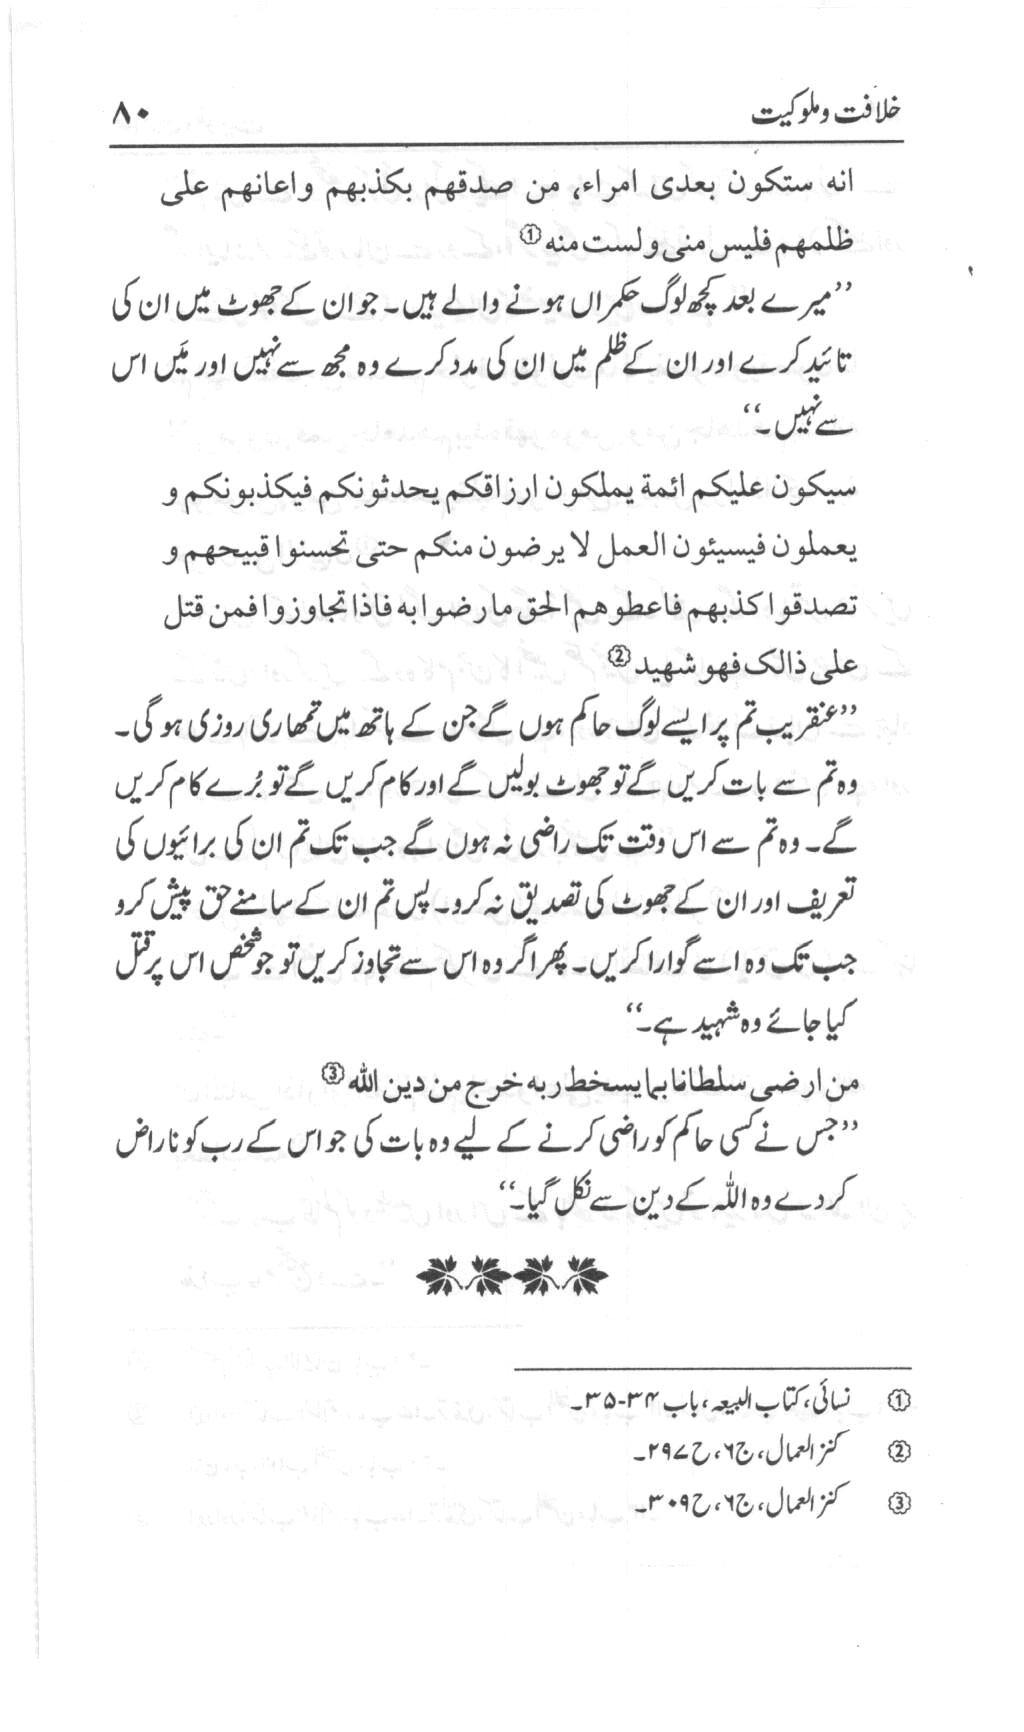 خلافت و ملوکیت ۸۰
انه ستکون بعدی امراء، من صدقهم بکذبهم واعانهم علی
ظلمهم فلیس منی ولست منه ①
’’میرے بعد کچھ لوگ حکمراں ہونے والے ہیں۔ جو ان کے جھوٹ میں ان کی
تائید کرے اور ان کے ظلم میں ان کی مدد کرے وہ مجھ سے نہیں اور مَیں اس
سے نہیں۔‘‘
سیکون علیکم ائمة یملکون ارزاقکم یحدثونکم فیکذبونکم و
یعملون فیسیئون العمل لا یرضون منکم حتی تحسنوا قبیحهم و
تصدقوا کذبهم فاعطوهم الحق ما رضوا به فاذا تجاوزوا فمن قتل
علی ذالک فهو شهید ②
’’عنقریب تم پر ایسے لوگ حاکم ہوں گے جن کے ہاتھ میں تمھاری روزی ہو گی۔
وہ تم سے بات کریں گے تو جھوٹ بولیں گے اور کام کریں گے تو بُرے کام کریں
گے۔ وہ تم سے اس وقت تک راضی نہ ہوں گے جب تک تم ان کی برائیوں کی
تعریف اور ان کے جھوٹ کی تصدیق نہ کرو۔ پس تم ان کے سامنے حق پیش کرو
جب تک وہ اسے گوارا کریں۔ پھر اگر وہ اس سے تجاوز کریں تو جو شخص اس پر قتل
کیا جائے وہ شہید ہے۔‘‘
من ارضی سلطانا بما یسخط ربه خرج من دین الله ③
’’جس نے کسی حاکم کو راضی کرنے کے لیے وہ بات کی جو اس کے رب کو ناراض
کر دے وہ اللہ کے دین سے نکل گیا۔‘‘
① نسائی، کتاب البیعہ، باب ۳۴-۳۵۔
② کنز العمال، ج۶، ح ۲۹۷۔
③ کنز العمال، ج۶، ح ۳۰۹۔